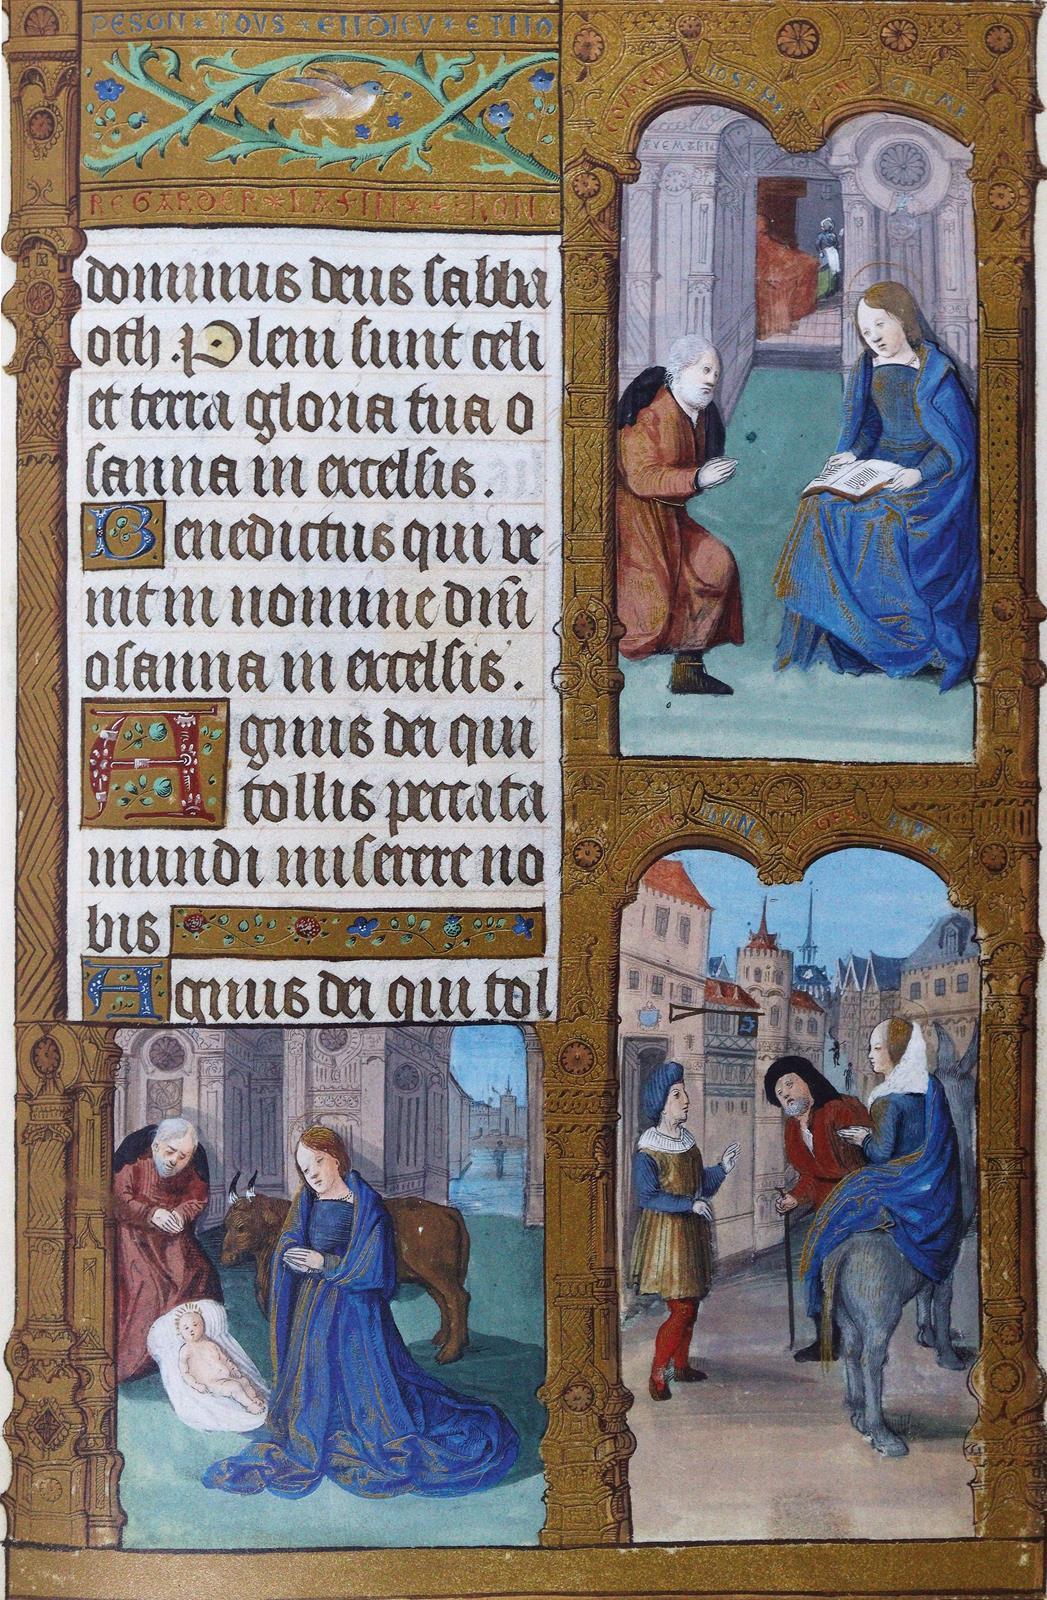 PESON * TOVS * ENDIEV * ETTNO
REGARDER * LA * FIN * E * RON
dominus deus sabba
oth . Pleni sunt celi
et terra gloria tua o
sanna in excelsis .
Benedictus qui ve
nit in nomine dn̄i
osanna in excelsis .
Agnus dei qui
tollis peccata
mundi miserere no
bis
Agnus dei qui tol
IOSEPH
AVE MARIE